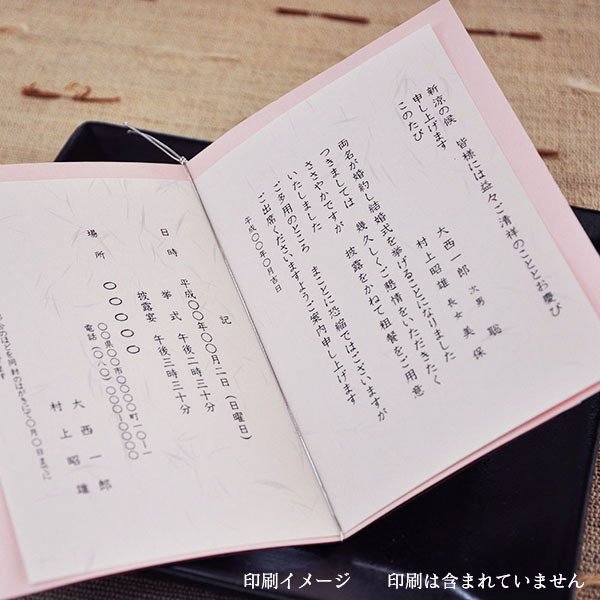 新涼の候　皆様には益々ご清祥のこととお慶び
申し上げます
このたび
大西一郎　次男　聡
村上昭雄　長女　美保
両名が婚約し結婚式を挙げることになりました
つきましては　幾久しくご懇情をいただきたく
ささやかですが　披露をかねて粗餐をご用意
いたしました
ご多用のところ　まことに恐縮ではございますが
ご出席くださいますようご案内申し上げます
平成〇〇年〇月吉日
記
日時　平成〇〇年〇〇月二日（日曜日）
挙式　午後二時二十分
披露宴　午後三時三十分
場所　〇〇〇〇〇
〇〇県〇〇市〇〇〇〇町一〇-一
電話（〇〇〇）〇〇〇-〇〇〇〇
大西一郎
村上昭雄
印刷イメージ　印刷は含まれていません